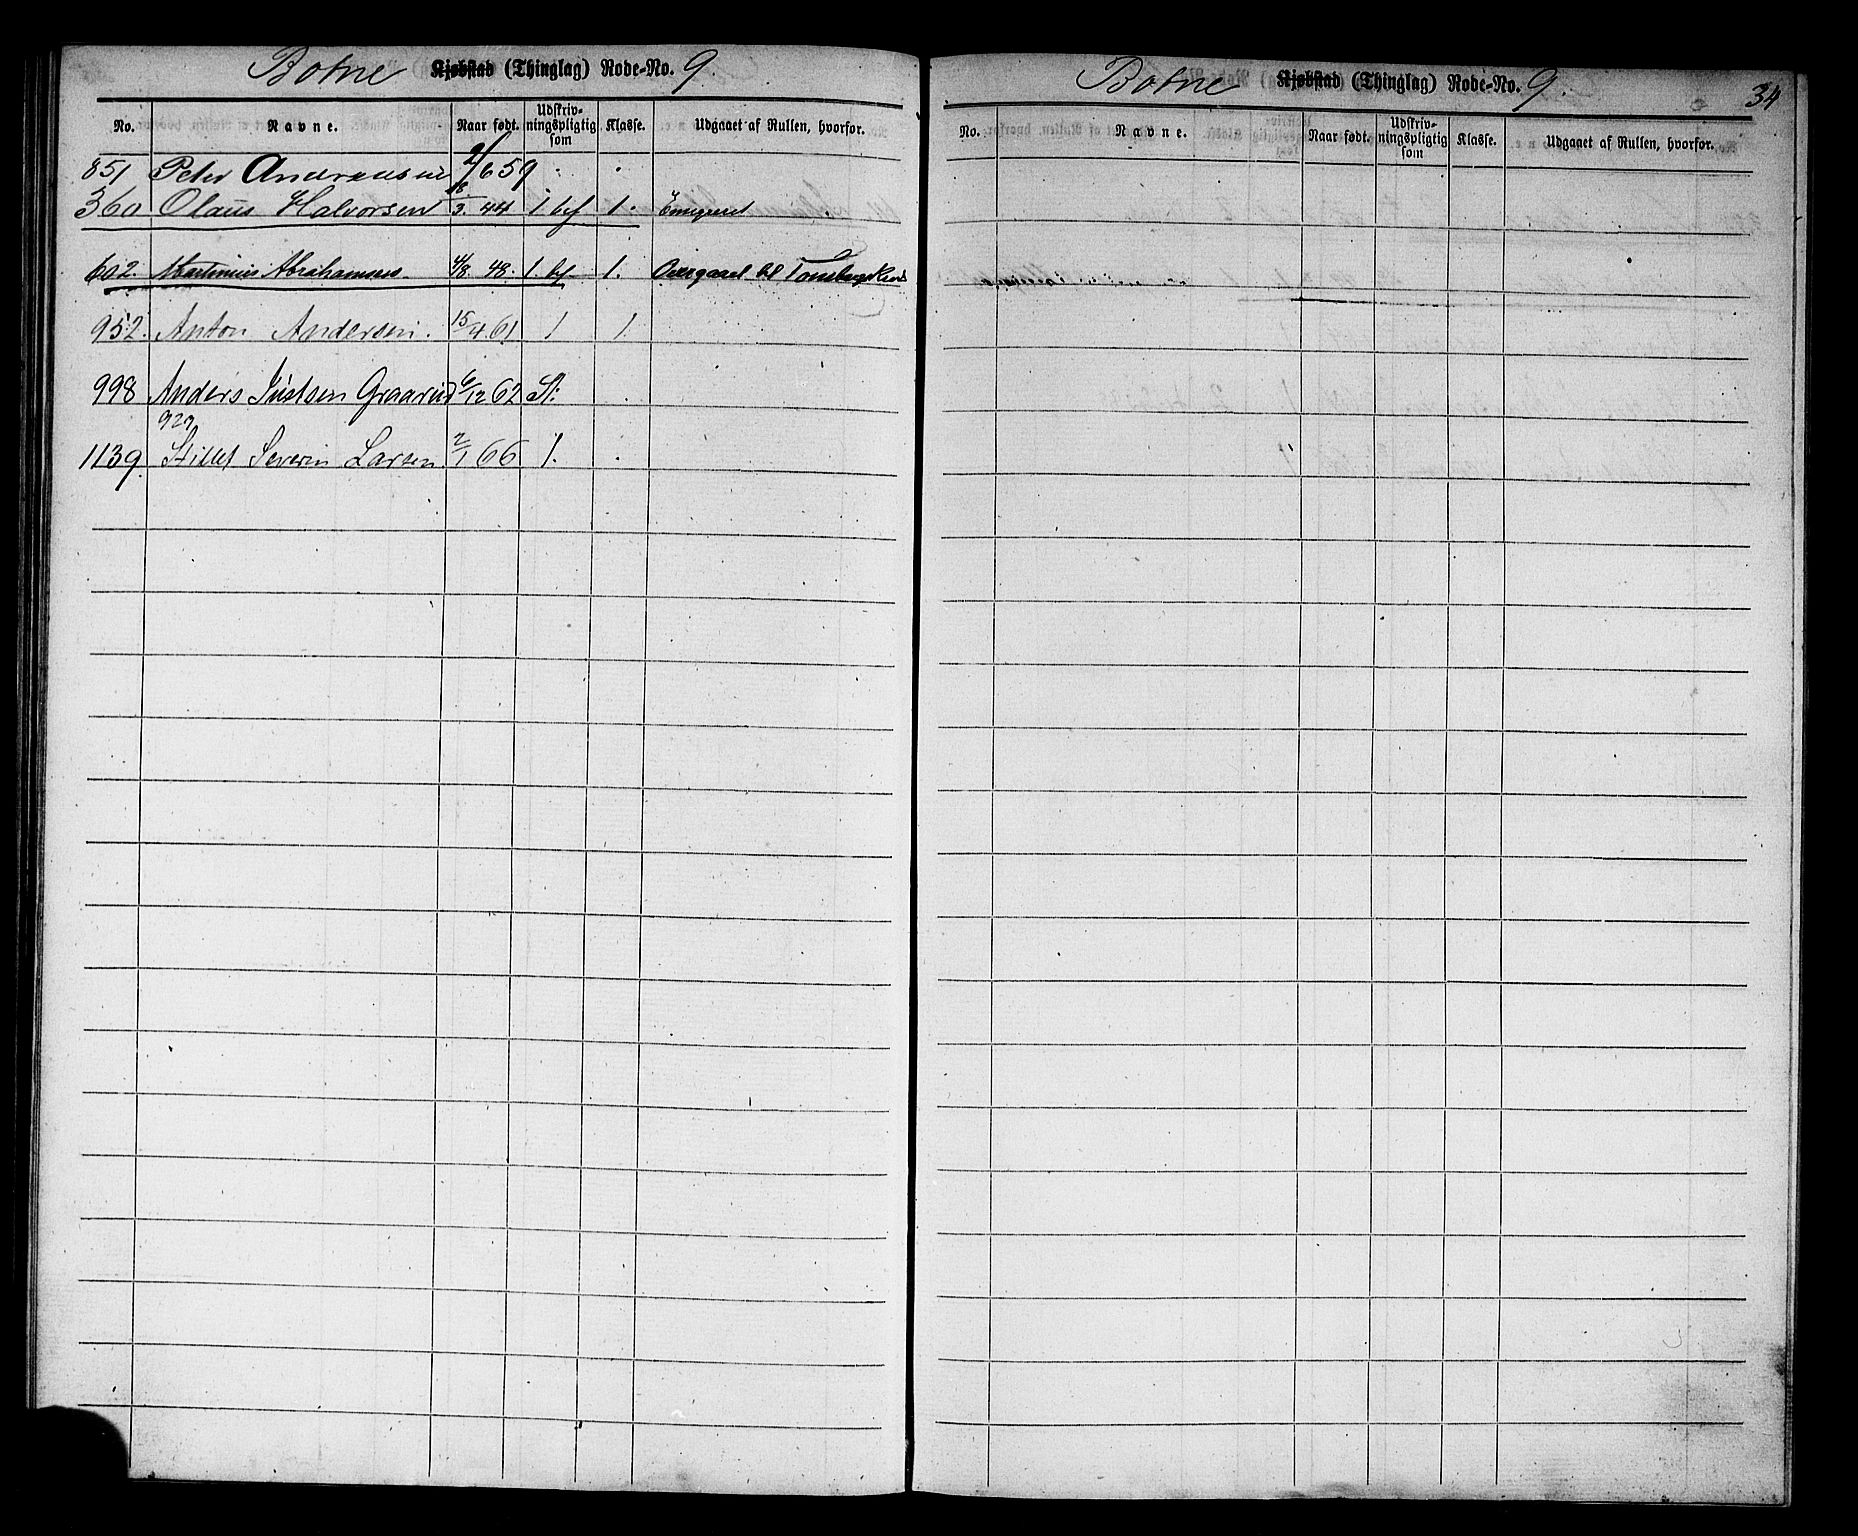 Botne Kjøbstad (Thinglag) Rode-No. 9.
No. Navne. Naar født. Udskriv-ningspligtig som Klasse. Udgaaet af Rullen, hvorfor.
851 Peter Andreassen 2/6 59
360 Olaus Halvorsen 18/3. 44 1 bef 1. Emigreret
602. Martinius Abrahamsen. 4/8 48. 1. bef 1. Overgaaet til Tønsberg
952. Anton Andersen. 15/4 61 1 1.
998 Anders Justsen Graarud 6/12 62 St.
929
1139 Stillef Severin Larsen 2/1 66 1.
Botne Kjøbstad (Thinglag) Rode-No. 9.
34
No. Navne. Naar født. Udskriv-ningspligtig som Klasse. Udgaaet af Rullen, hvorfor.